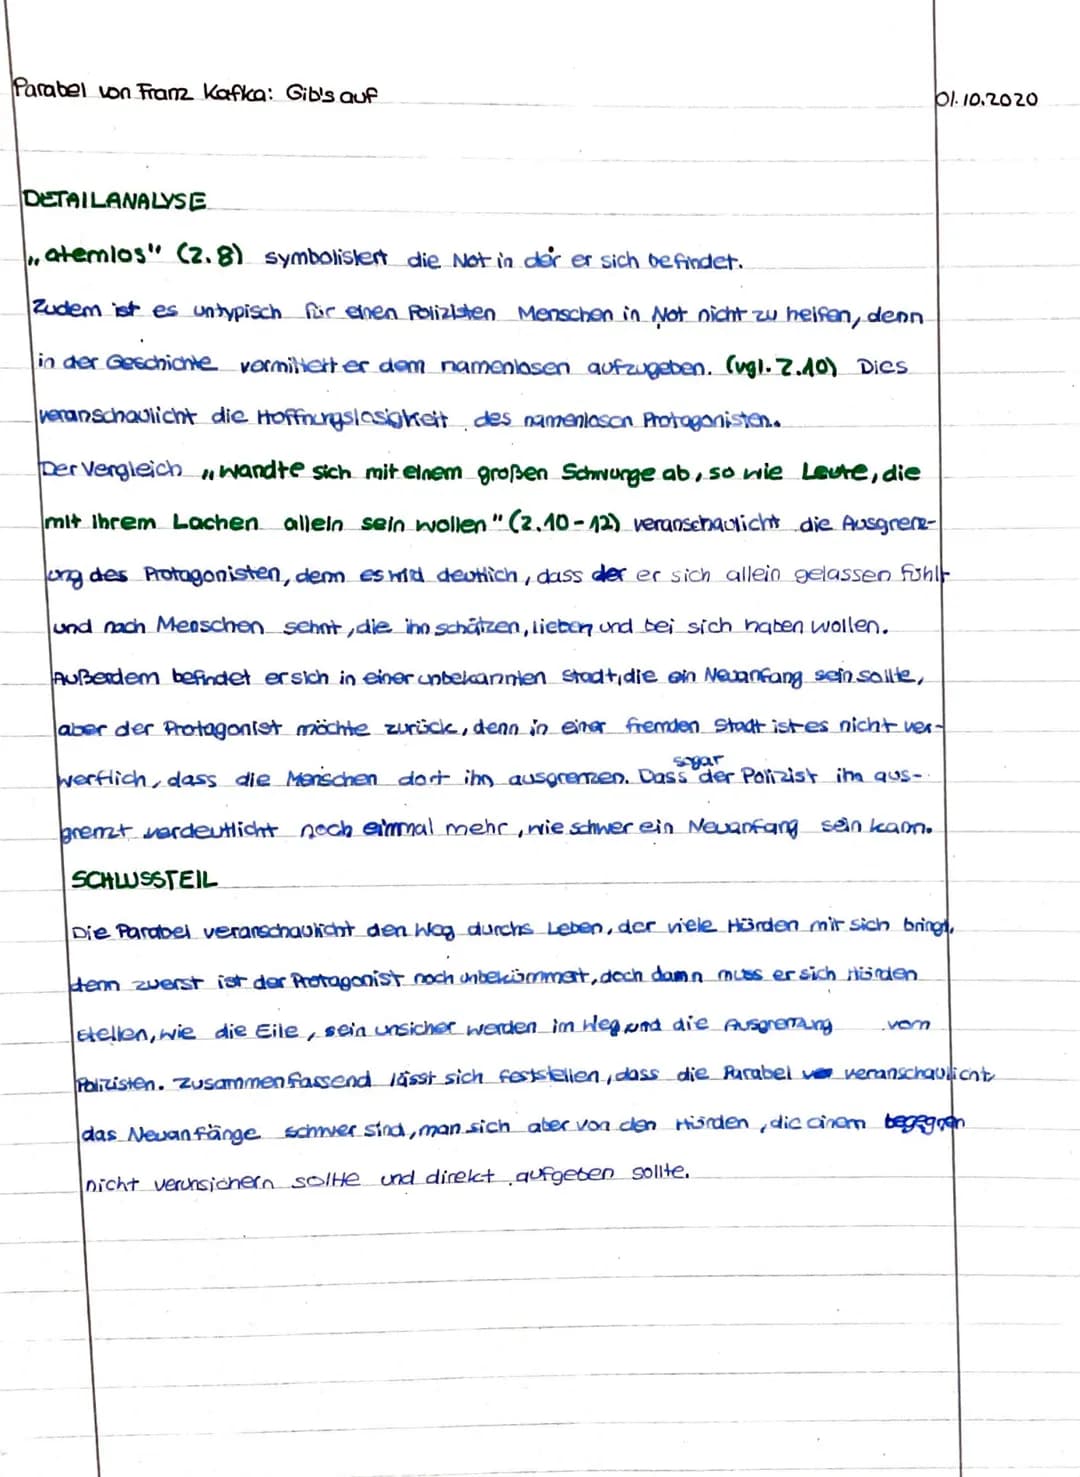 Parabel von Franz Kafka: Gib's auf
01.10.2020
DETAILANALYSE
„atemlos" (Z.8) symbolisiert die Not in der er sich befindet.
Zudem ist es untypisch für einen Polizisten Menschen in Not nicht zu helfen, denn
in der Geschichte vermittelt er dem namenlosen aufzugeben. (vgl. Z.10) Dies
veranschaulicht die Hoffnungslosigkeit des namenlosen Protagonisten.
Der Vergleich „wandte sich mit einem großen Schwunge ab, so wie Leute, die
mit ihrem Lachen allein sein wollen" (Z.10-12) veranschaulicht die Ausgrenz-
ung des Protagonisten, denn es wird deutlich, dass der er sich allein gelassen fühlt
und nach Menschen sehnt, die ihn schätzen, lieben und bei sich haben wollen.
Außerdem befindet er sich in einer unbekannten Stadt, die ein Neuanfang sein sollte,
aber der Protagonist möchte zurück, denn in einer fremden Stadt ist es nicht ver-
werflich, dass die Menschen dort ihn ausgrenzen. Dass sogar der Polizist ihn aus-
grenzt verdeutlicht noch einmal mehr, wie schwer ein Neuanfang sein kann.
SCHLUSSTEIL
Die Parabel veranschaulicht den Weg durchs Leben, der viele Hürden mit sich bringt,
denn zuerst ist der Protagonist noch unbekümmert, doch dann muss er sich Hürden
stellen, wie die Eile, sein unsicher werden im Weg und die Ausgrenzung vom
Polizisten. Zusammenfassend lässt sich feststellen, dass die Parabel veranschaulicht
das Neuanfänge schwer sind, man sich aber von den Hürden, die einem begegnen
nicht verunsichern sollte und direkt aufgeben sollte.